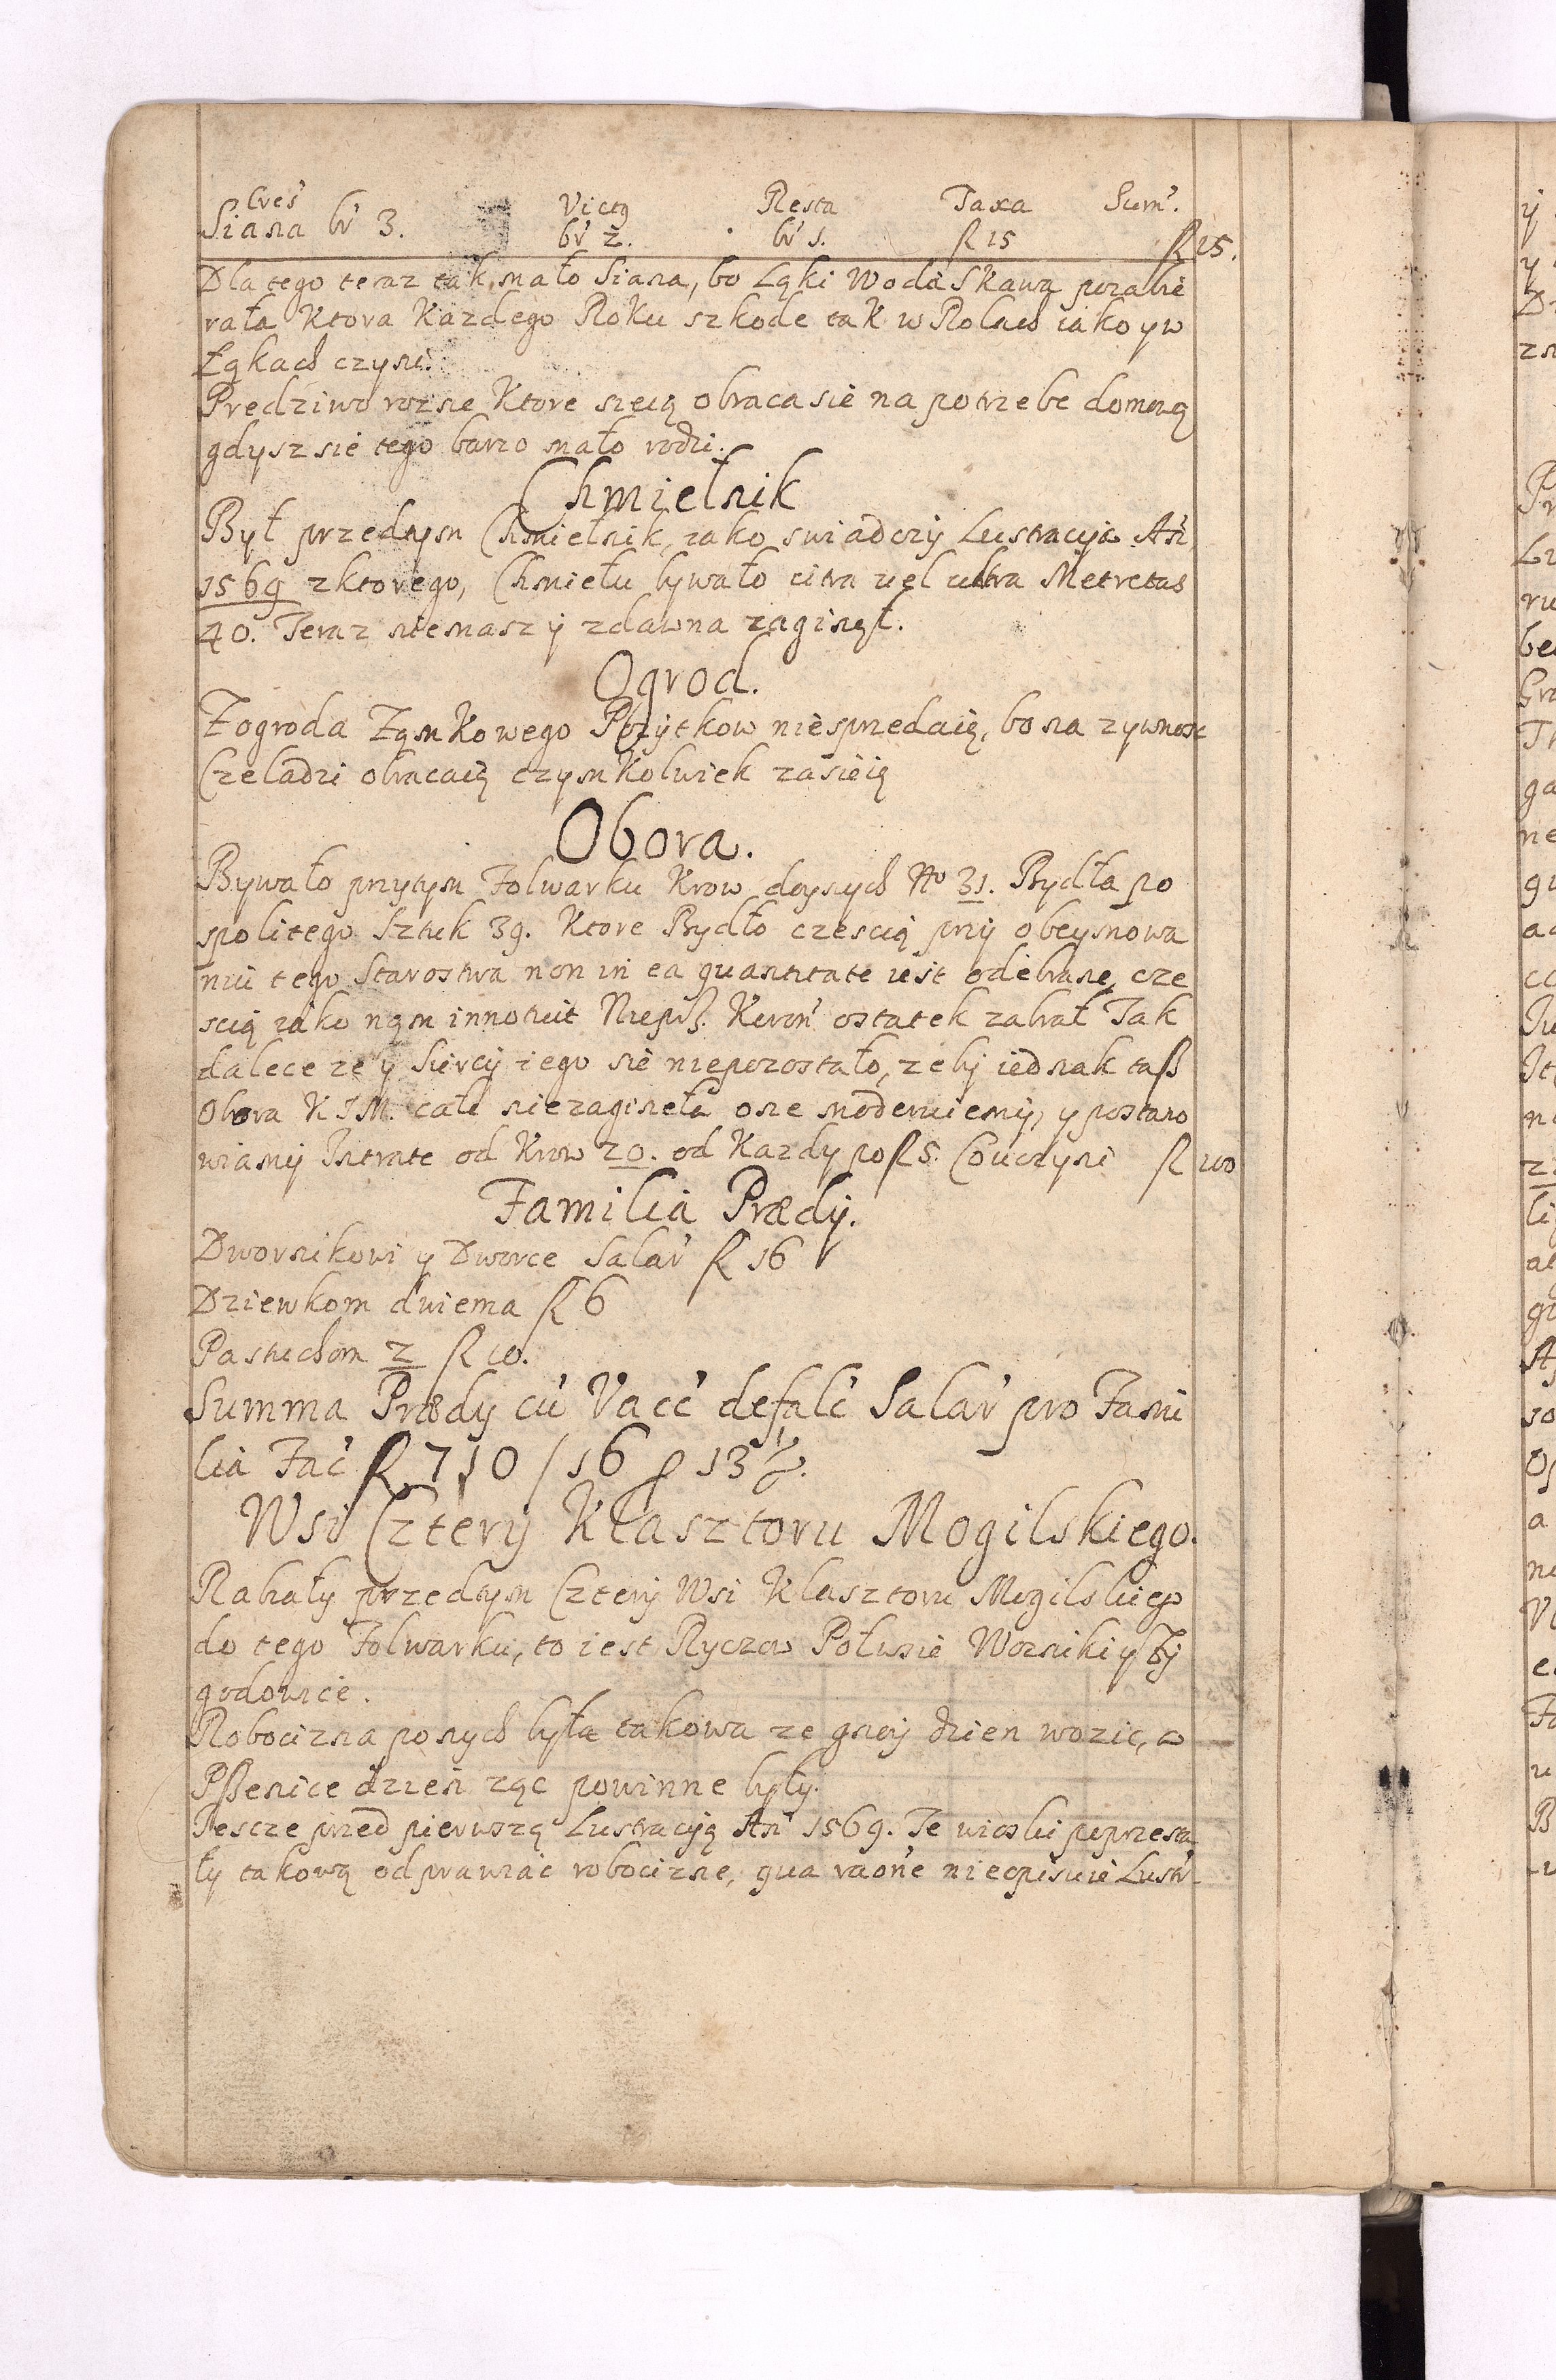 Cres̃ Victg Resta Taxa Sum̃.
Siana br̃ 3. br̃ 2. br̃ 1. f 15 f 15.
Dla tego teraz tak mało Siana, bo Łąki Woda Skawa pozabie
rała Ktora Kazdego Roku szkode tak w Rolach iako y w
Łąkach czyni.
Predziwo rozne Ktore sieią obraca sie na potrzebe domową
gdysz sie tego barzo mało rodzi.
Chmielnik
Był przedtym Chmielnik, iako swiadczy Lustracyia Añ
1569 z ktorego, Chmielu bywało citra vel ultra Metretas
40. Teraz niemasz y zdawna zaginął.
Ogrod.
Z ogroda Zamkowego Pozytkow niesprzedaią, bo na zywnosc
Czeladzi obracaią czymkolwiek zasieią
Obora.
Bywało przytym Folwarku Krow doynych No 31. Bydła po
spolitego Sztuk 39. Ktore Bydło czescią przy obeymowa
niu tego Starostwa non in ea quantitate iest odebrane, cze
scią iako nam innotuit Nieprz. Koroñ ostatek zabrał Tak
dalece ze y Siercij iego sie niepozostało, zeby iednak taß
Obora K I M. cale niezagineła one modemiemy, y postano
wiamy Intrate od Krow 20. od Kazdy po f 5. Co uczyni f 100
Familia Prædij.
Dwornikowi y Dworce Salar̃ f 16
Dziewkom dwiema f 6
Pastuchom 2 f 10.
Summa Prædij cũ Vacc̃ defalc̃ Salar̃ pro Fami
lia Fac̃ f 710 / 16 13½.
Wsi Cztery Klasztoru Mogilskiego.
Rabały przedtym Cztery Wsi Klasztoru Mogilskiego
do tego Folwarku, to iest Ryczow Połwsie Wozniki y Zy
godowice.
Robocizna ponych była takowa ze gnoy dzien wozic, a
Pßenice dzien ząc powinne były.
Iescze przed pierwszą Lustracyią Añ 1569. Te wioski poprzesta
ły takową odprawiac robocizne, qua raõne nieopisuie Lustr-